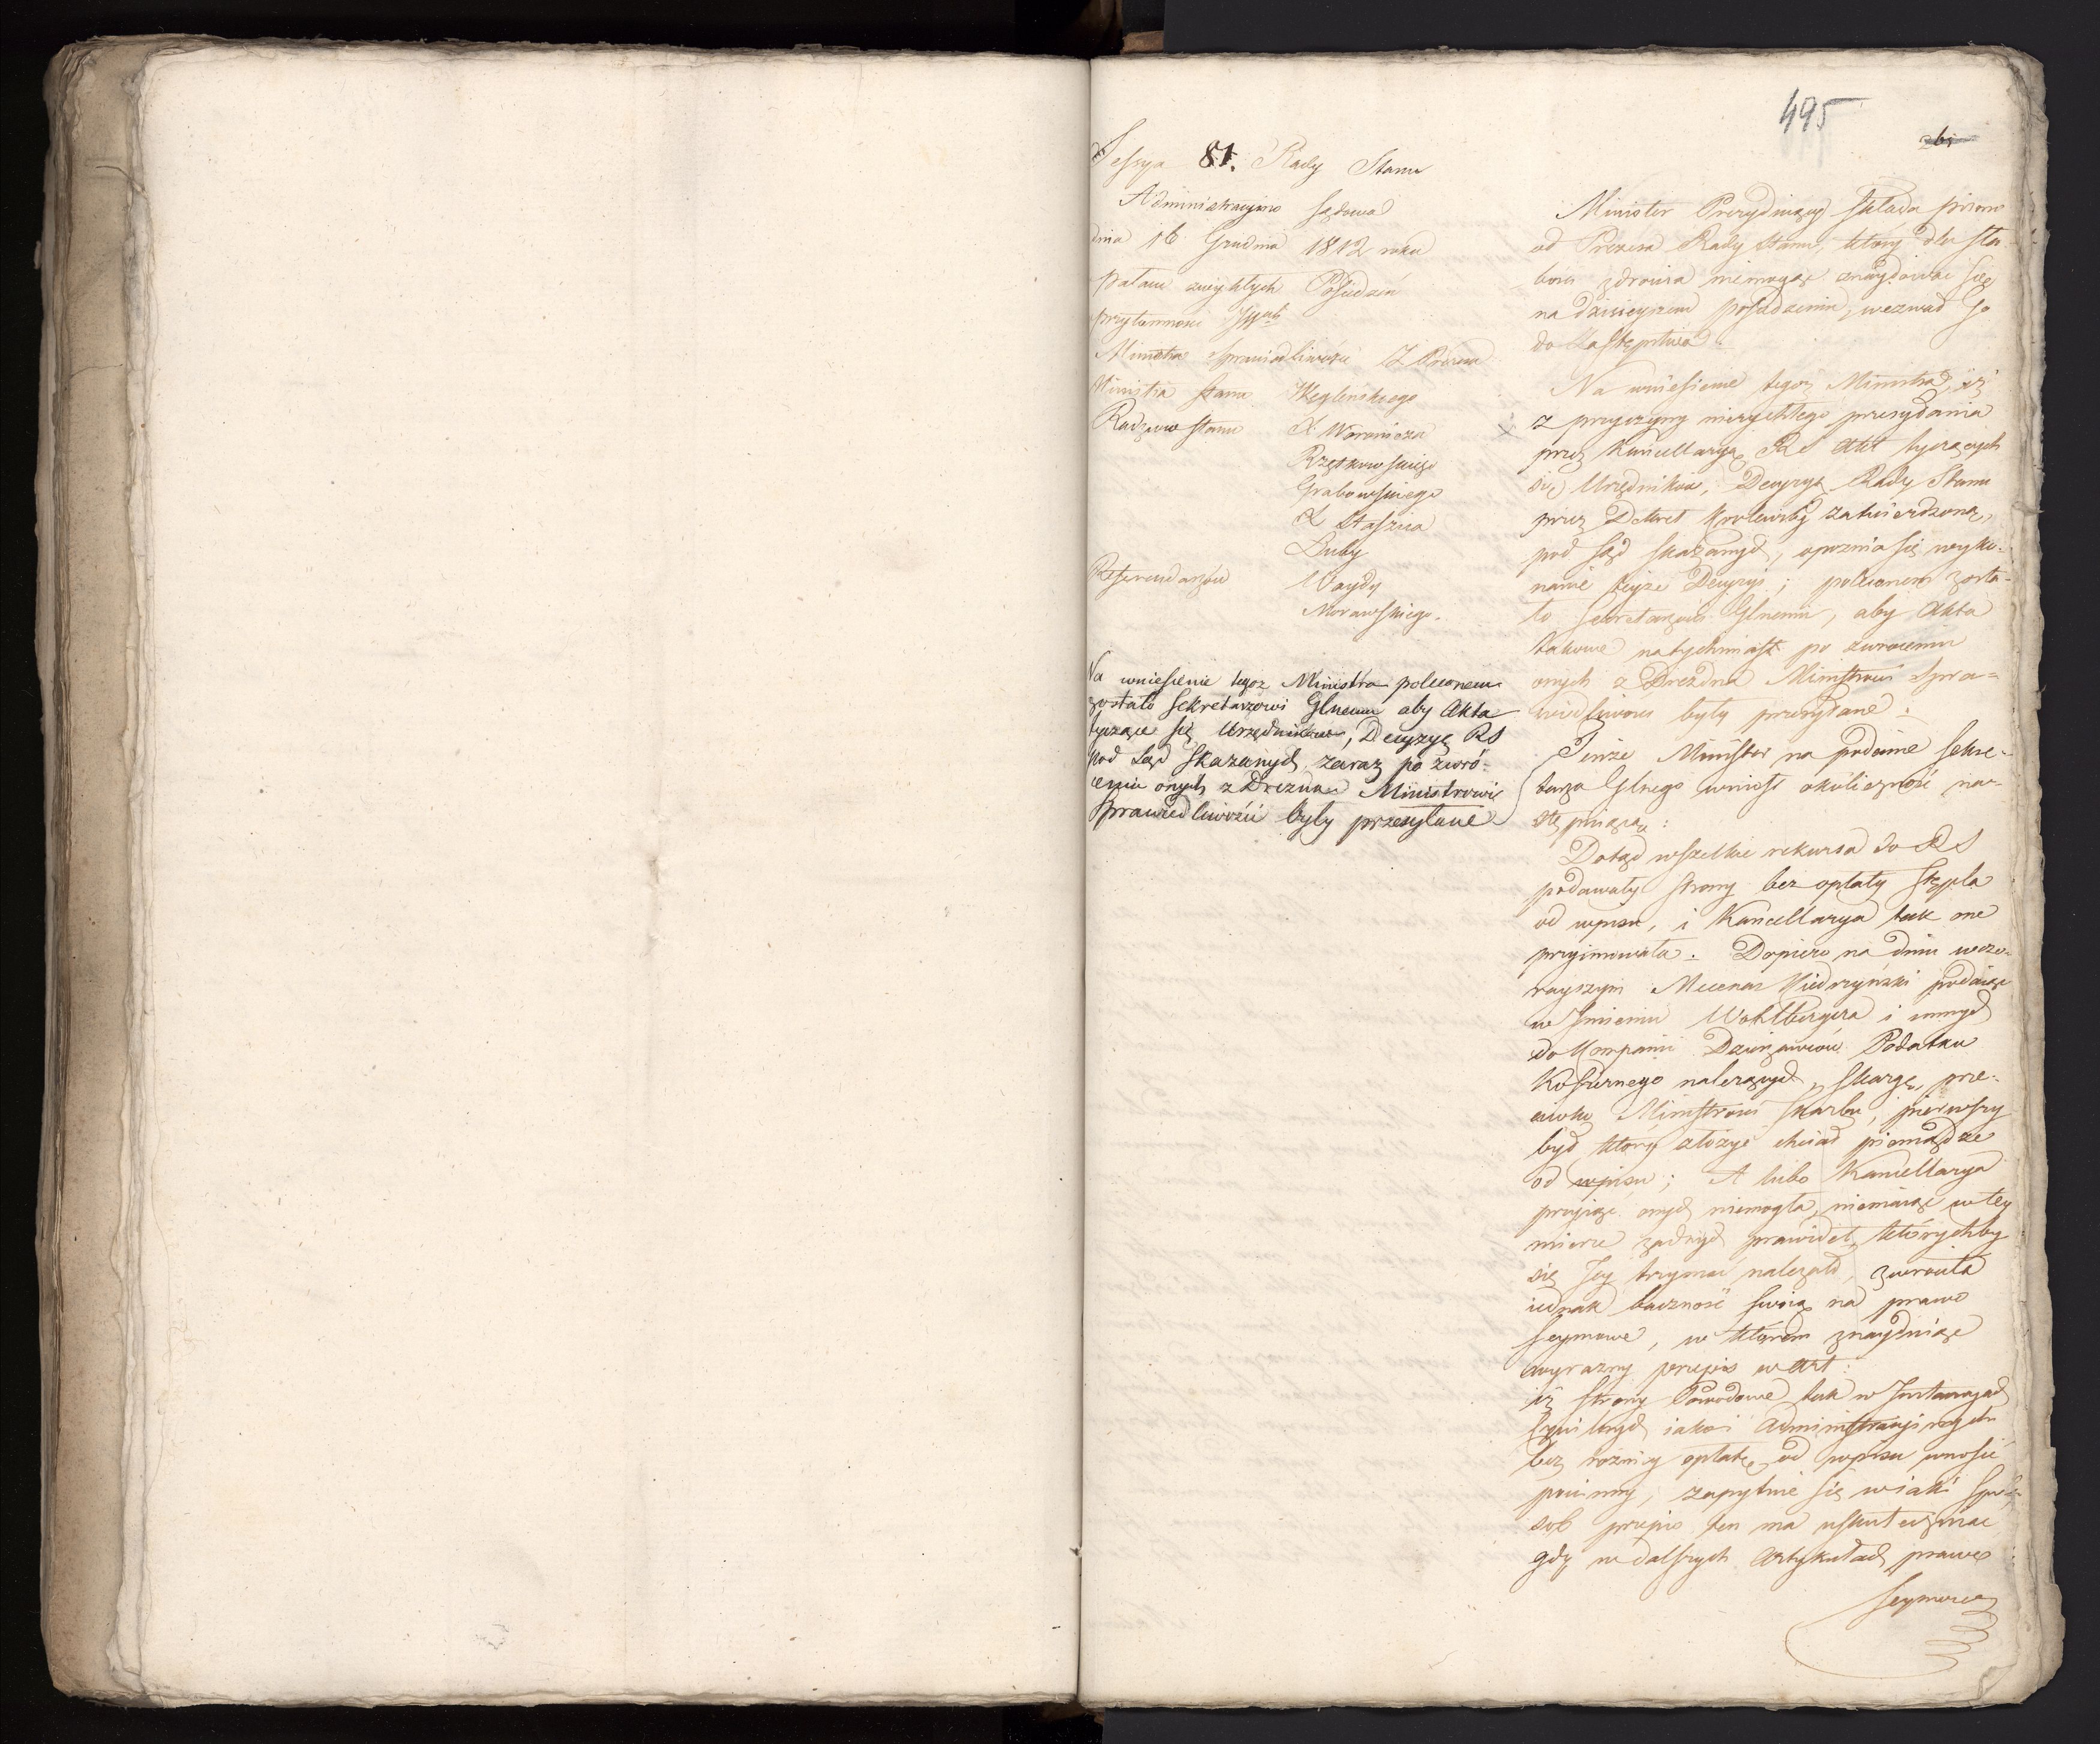 495
261
Sessya 81. Rady Stanu
Administracyino Sądowa
dnia 16 Grudnia 1812 roku
Pałacu zwykłych Posiedzeń
przytomności JJWW
Ministra Sprawiedliwości Z. Prezesa
Ministra Stanu Węgleńskiego
Radzców Stanu X. Woronicza
Rzętkowskiego
Grabowskiego
X. Staszica
Luby
Referendarzów Waydy
Morawskiego.
Na wniesienie tegoż Ministra poleconem
zostało Sekretarzowi Glnemu aby Akta
tyczące się Urzędników, Decyzyą RS
pod Sąd skazanych zaraz po zwró-
ceniu onych z Drezna Ministrowi
Sprawiedliwości były przesyłane
Minister Prezyduiący składa pismo
od Prezesa Rady Stanu, który dla sła-
bości zdrowia niemogąc znaydować się
na dzisieyszem posiedzeniu, wezwał go
do zastępstwa.
Na wniesienie tegoż Ministra, iż
z przyczyny nierychłego przesyłania
przez Kancellaryą RS Akt tyczących
się Urzędników, Decyzyą Rady Stanu
przez Dekret Królewski zatwierdzoną,
pod Sąd skazanych, opoznia się wyko-
nanie teyże Decyzyi; poleconem zosta-
ło Sekretarzowi Glnemu, aby Akta
takowe natychmiast po zwroceniu
onych z Drezna Ministrowi Spra-
wiedliwości były przesyłane.
Tenże Minister na podanie Sekre-
tarza Glnego wniosł okoliczność na-
stępuiącą:
Dotąd wszelkie rekursa do RS
podawały strony bez opłaty stępla
od wpisu, i Kancellarya tak one
przyimowała. Dopiero na dniu wczo-
rayszym Mecenas Niedrzyński podaiąc
w Imieniu Wohlbergera i innych
do Kompanii Dzierżawców Podatku
Koszernego należących, skargę, prze-
ciwko Ministrowi Skarbu, pierwszy
był który złożyć chciał pieniądze
od wpisu; A lubo Kancellarya
przyiąć onych niemogła, niemaiąc w tey
mierze żadnych prawideł, którychby
się Jey trzymać należało, zwrociła
iednak baczność swoią na prawo
Seymowe, w którem znayduiąc
wyrazny przepis w Art:
iż strony Powodowe tak w Instancyach
Cywilnych iako i Administracyinych
bez rożnicy opłatę od wpisu wnosić
powinny, zapytuie się w iaki spo-
sob przepis ten ma uskuteczniać
gdy w dalszych Artykułach prawa
Seymowego